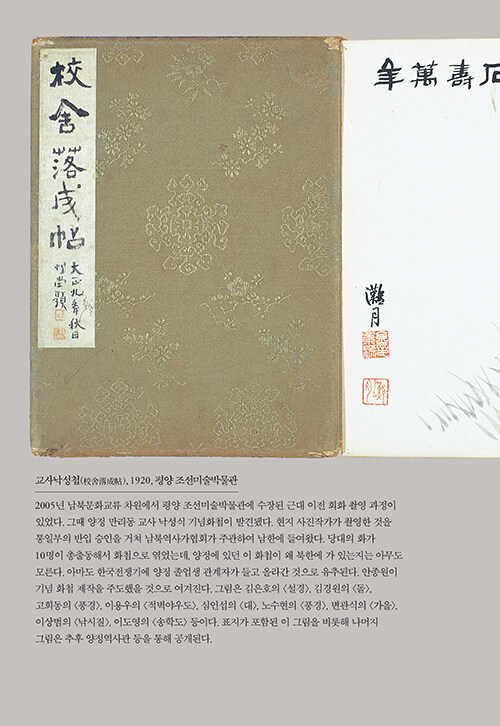 校舍落成帖
大正九年秋日
題
石壽萬年
灘月
교사낙성첩(校舍落成帖), 1920, 평양 조선미술박물관
2005년 남북문화교류 차원에서 평양 조선미술박물관에 수장된 근대 이전 회화 촬영 과정이
있었다. 그때 양정 만리동 교사 낙성식 기념화첩이 발견됐다. 현지 사진작가가 촬영한 것을
통일부의 반입 승인을 거쳐 남북역사가협회가 주관하여 남한에 들여왔다. 당대의 화가
10명이 총출동해서 화첩으로 엮었는데, 양정에 있던 이 화첩이 왜 북한에 가 있는지는 아무도
모른다. 아마도 한국전쟁기에 양정 졸업생 관계자가 들고 올라간 것으로 유추된다. 안종원이
기념 화첩 제작을 주도했을 것으로 여겨진다. 그림은 김은호의 〈설경〉, 김경원의 〈돌〉,
고희동의 〈풍경〉, 이용우의 〈적벽야우도〉, 심인섭의 〈대〉, 노수현의 〈풍경〉, 변관식의 〈가을〉,
이상범의 〈낚시질〉, 이도영의 〈송학도〉 등이다. 표지가 포함된 이 그림을 비롯해 나머지
그림은 추후 양정역사관 등을 통해 공개된다.